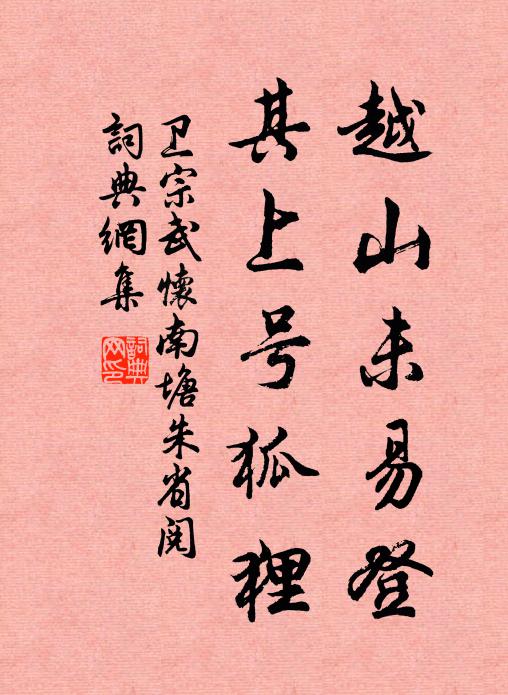 越山未易登
其上号狐狸
卫宗武懷南塘朱省阅
詞典網集
詞典网印